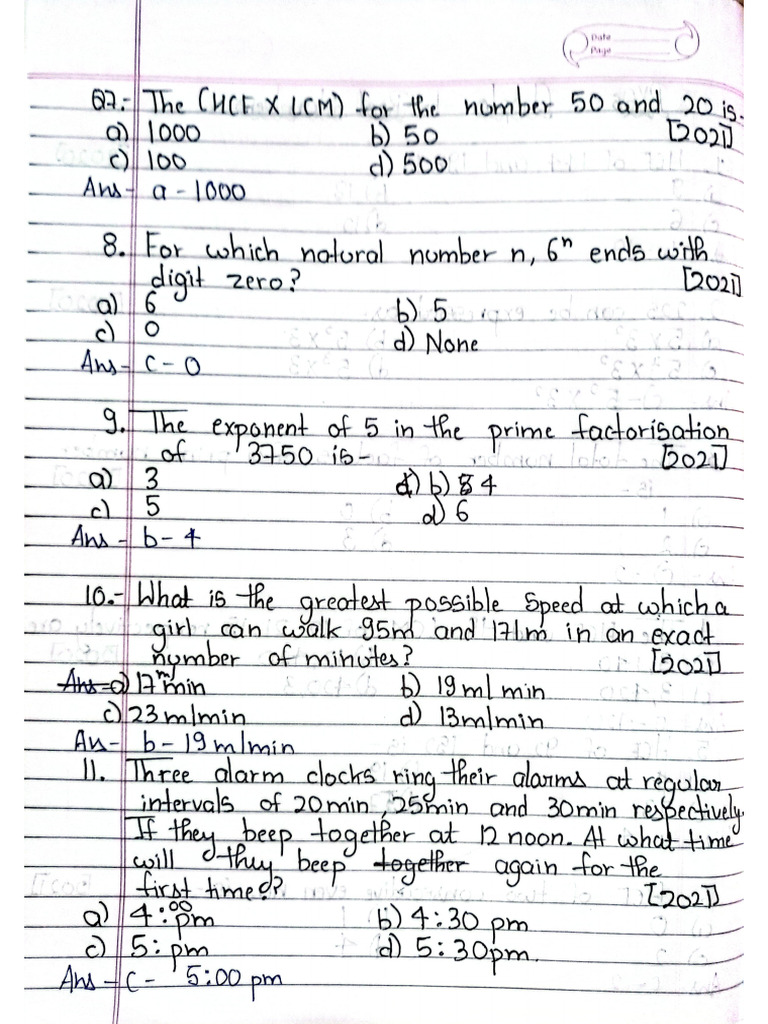 Date
Page
Q7:- The (HCF X LCM) for the number 50 and 20 is.
a) 1000 b) 50 [2021]
c) 100 d) 500
Ans- a - 1000
8. For which natural number n, 6ⁿ ends with
digit zero? [2021]
a) 6 b) 5
c) 0 d) None
Ans- c - 0
9. The exponent of 5 in the prime factorisation
of 3750 is- [2021]
a) 3 b) 4
c) 5 d) 6
Ans - b- 4
10.- What is the greatest possible speed at which a
girl can walk 95m and 171m in an exact
number of minutes? [2021]
Ans- a) 17 m/min b) 19 m/ min
c) 23 m/min d) 13m/min
An- b - 19 m/min
11. Three alarm clocks ring their alarms at regular
intervals of 20min, 25min and 30min respectively.
If they beep together at 12 noon. At what time
will they beep together again for the
first time? [2021]
a) 4:00 pm b) 4:30 pm
c) 5: pm d) 5:30pm.
Ans - c - 5:00 pm